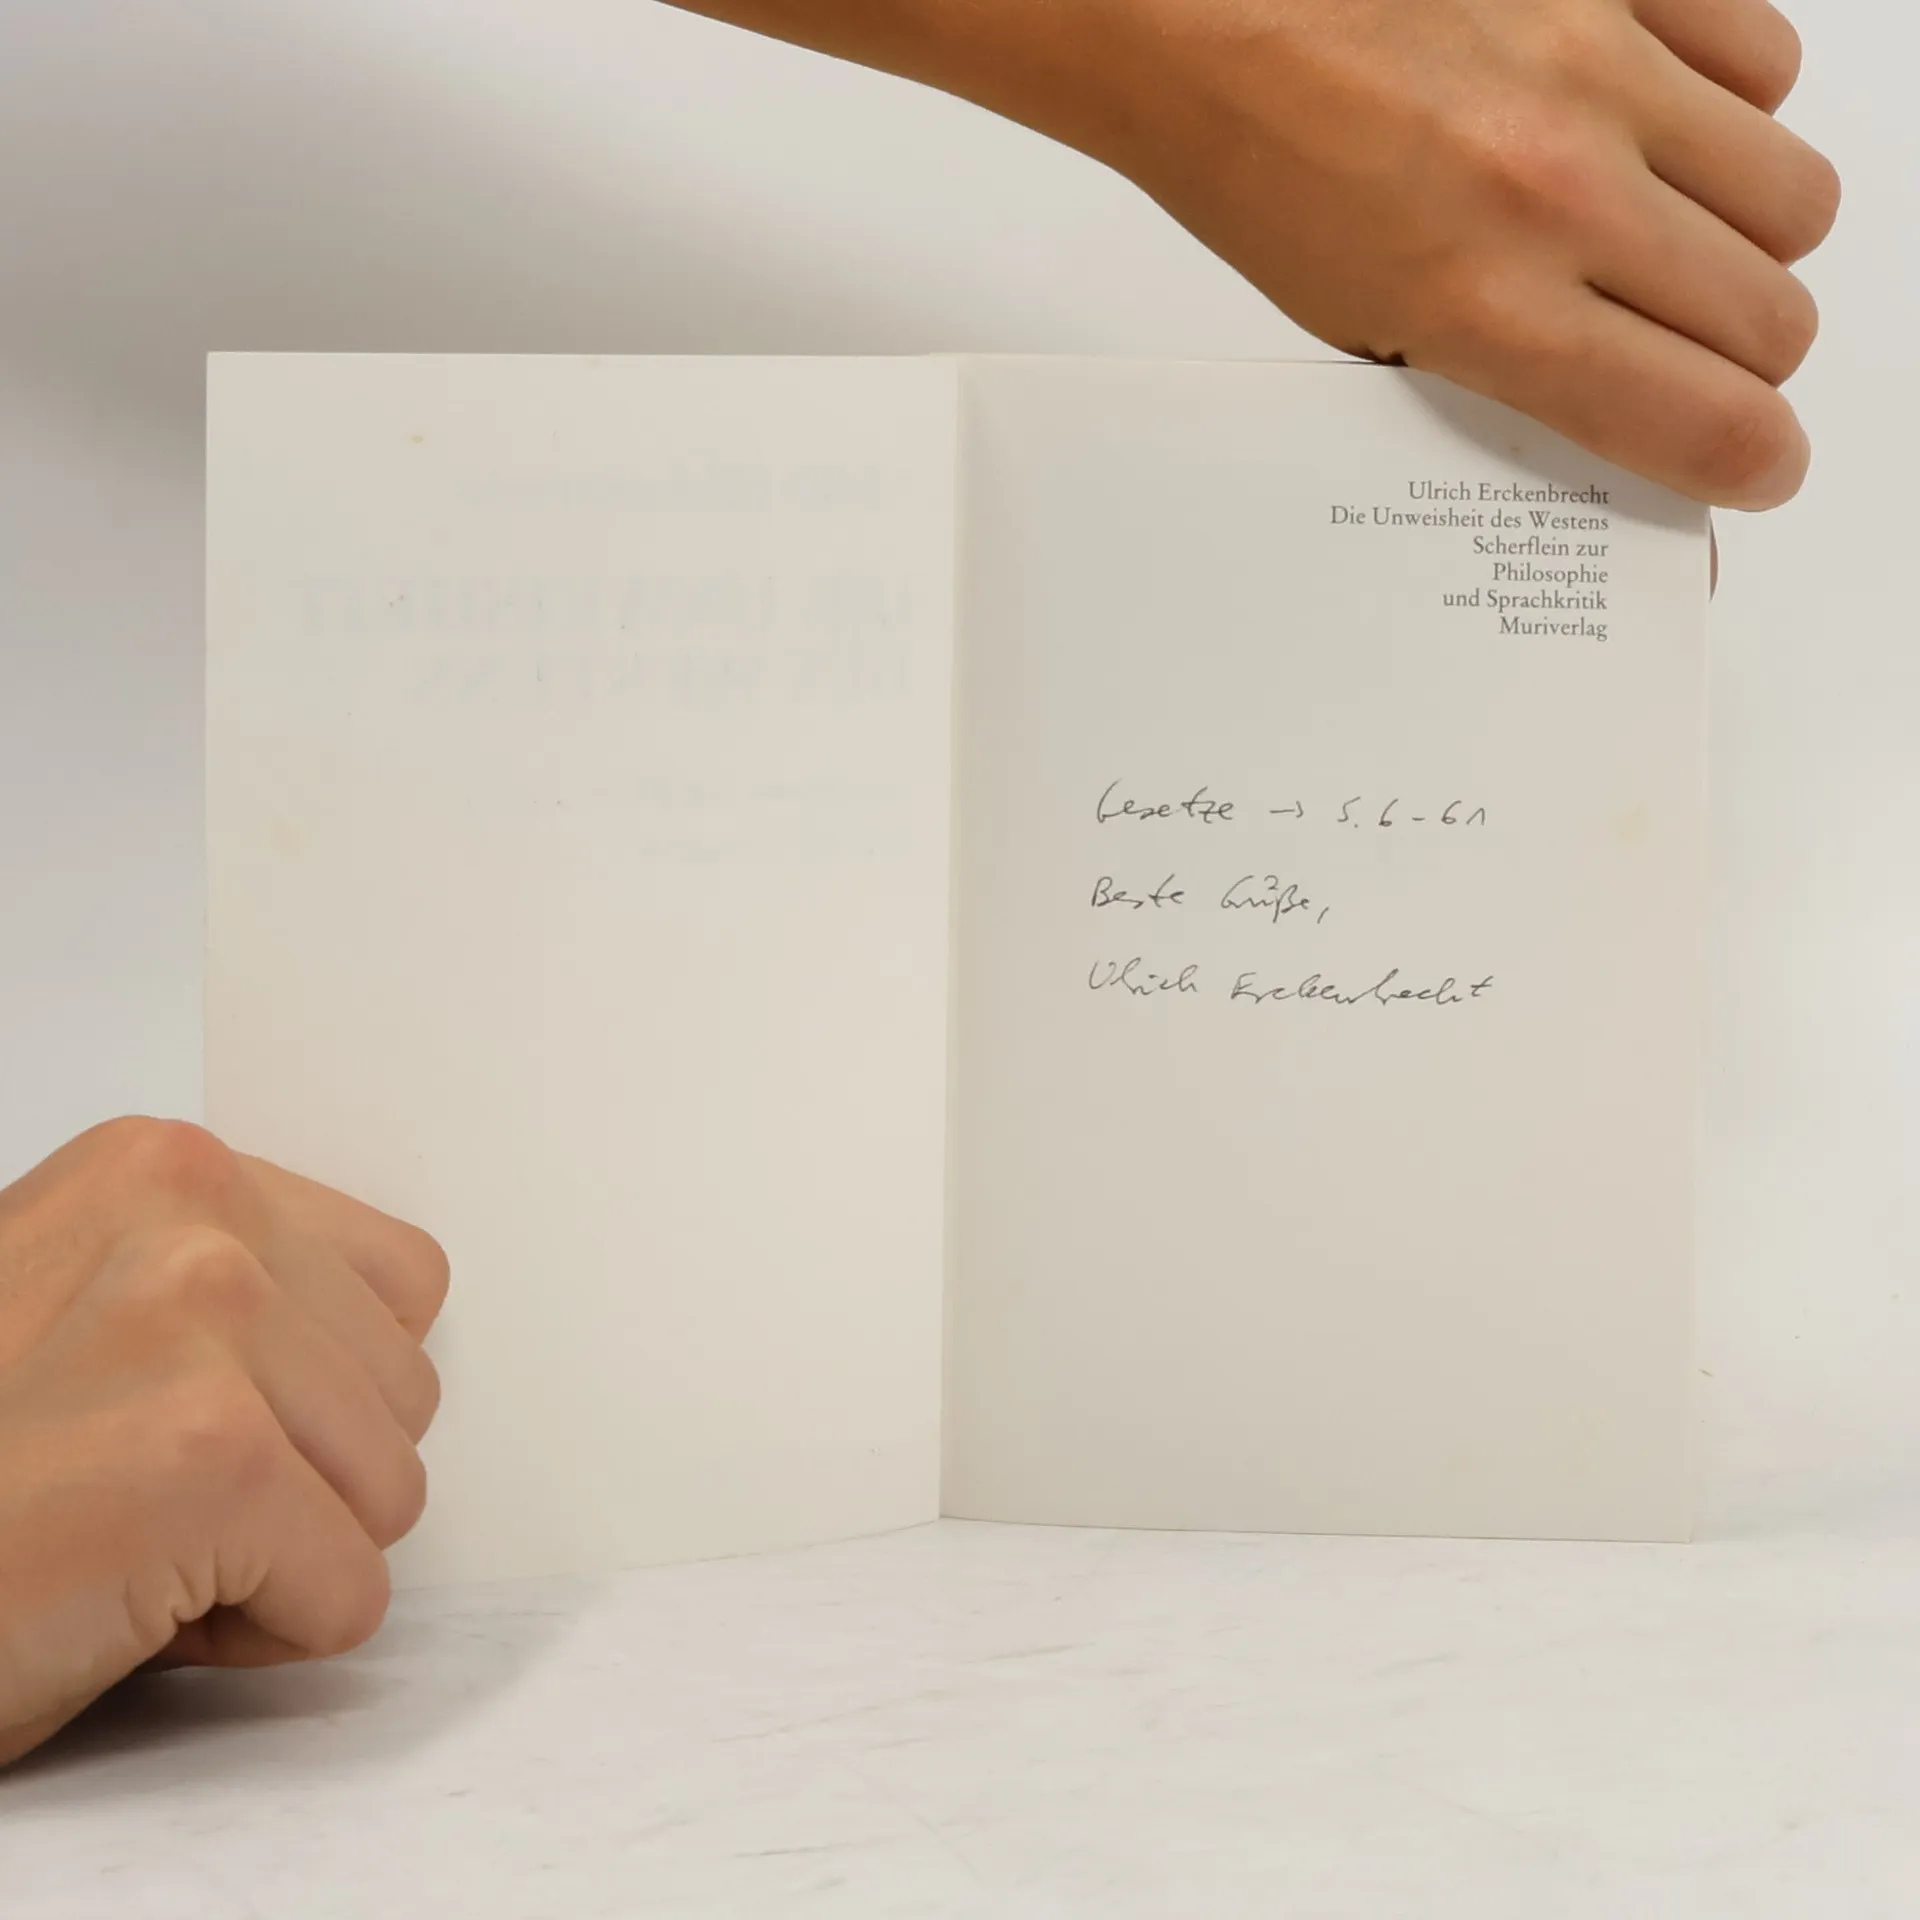 Ulrich Erckenbrecht
Die Unweisheit des Westens
Scherflein zur
Philosophie
und Sprachkritik
Muriverlag
Gesetze → S. 6-61
Beste Grüße,
Ulrich Erckenbrecht